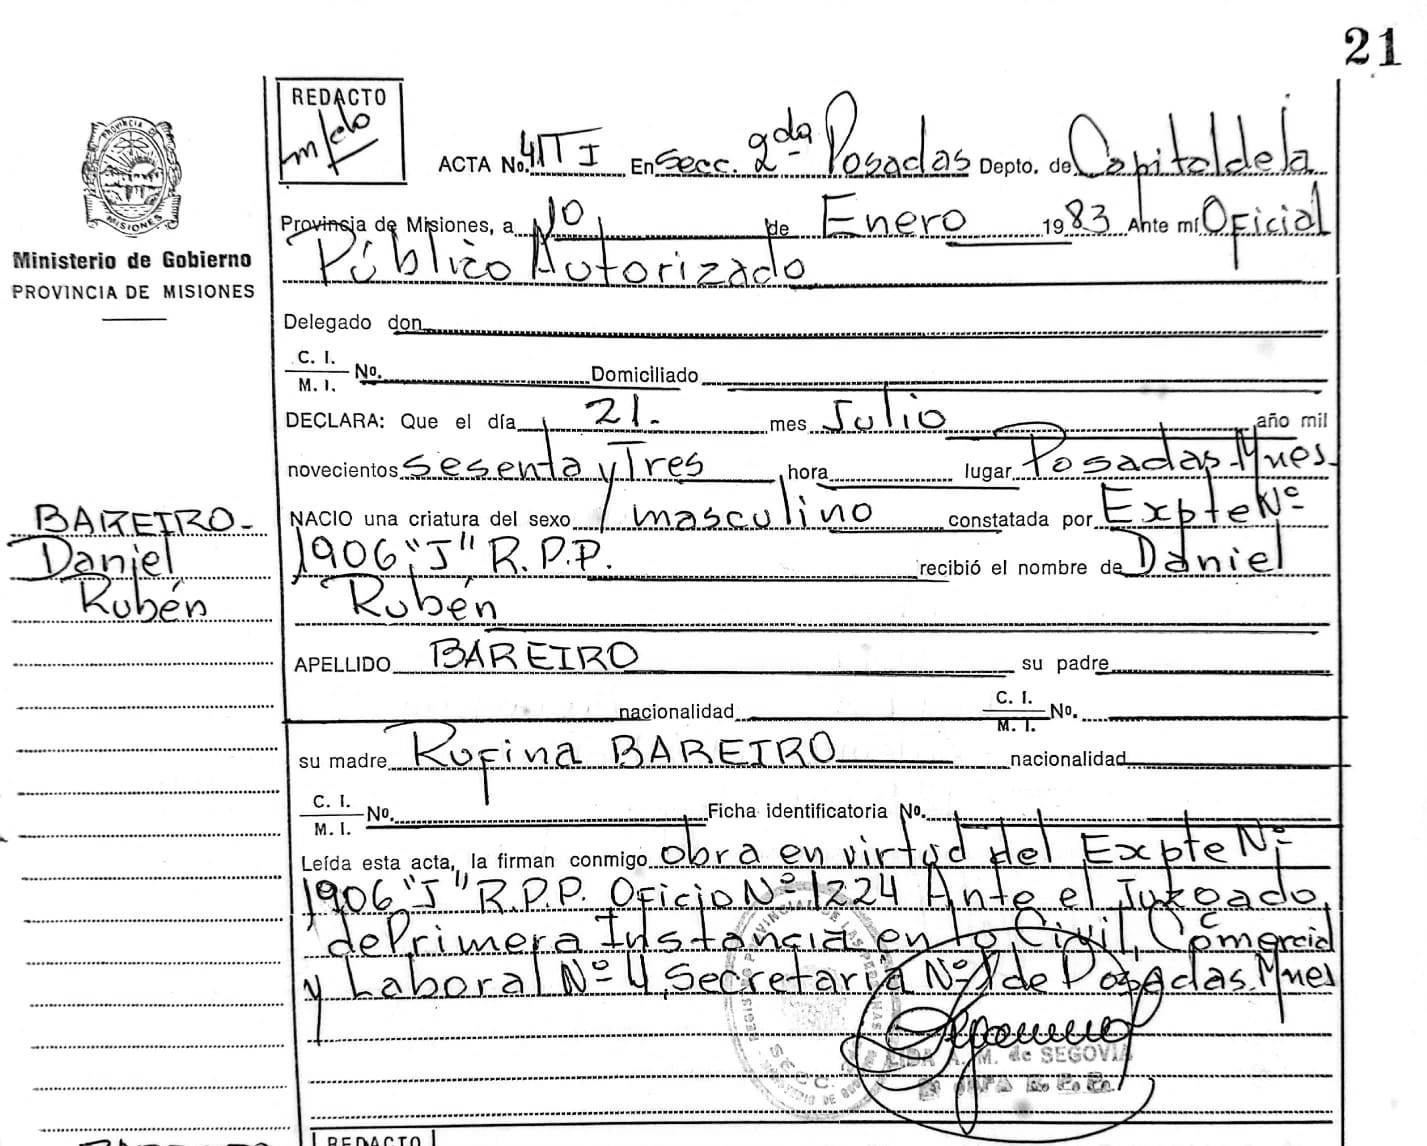 21
REDACTO
ACTA No. 4 T I En Secc. 2da Posadas Depto. de Capital de la
Provincia de Misiones, a 10 de Enero 1983 Ante mí Oficial
Público Autorizado
PROVINCIA DE MISIONES
Ministerio de Gobierno
PROVINCIA DE MISIONES
Delegado don
C. I.
M. I. No. Domiciliado
DECLARA: Que el día 21. mes Julio año mil
novecientos sesenta y Tres hora lugar Posadas Mnes.
BAREIRO-
Daniel
Rubén
NACIO una criatura del sexo masculino constatada por Expte Nº
1906 "J" R.P.P. recibió el nombre de Daniel
Rubén
APELLIDO BAREIRO su padre
nacionalidad C. I.
M. I. No.
su madre Rufina BAREIRO nacionalidad
C. I.
M. I. No. Ficha identificatoria No.
Leída esta acta, la firman conmigo obra en virtud del Expte Nº
1906 "J" R.P.P. Oficio Nº 1224 Ante el Juzgado
de Primera Instancia en lo Civil, Comercial
y Laboral Nº 4, Secretaria Nº 1 de Posadas Mnes
A. M. de SEGOVIA
SECC.
REDACTO